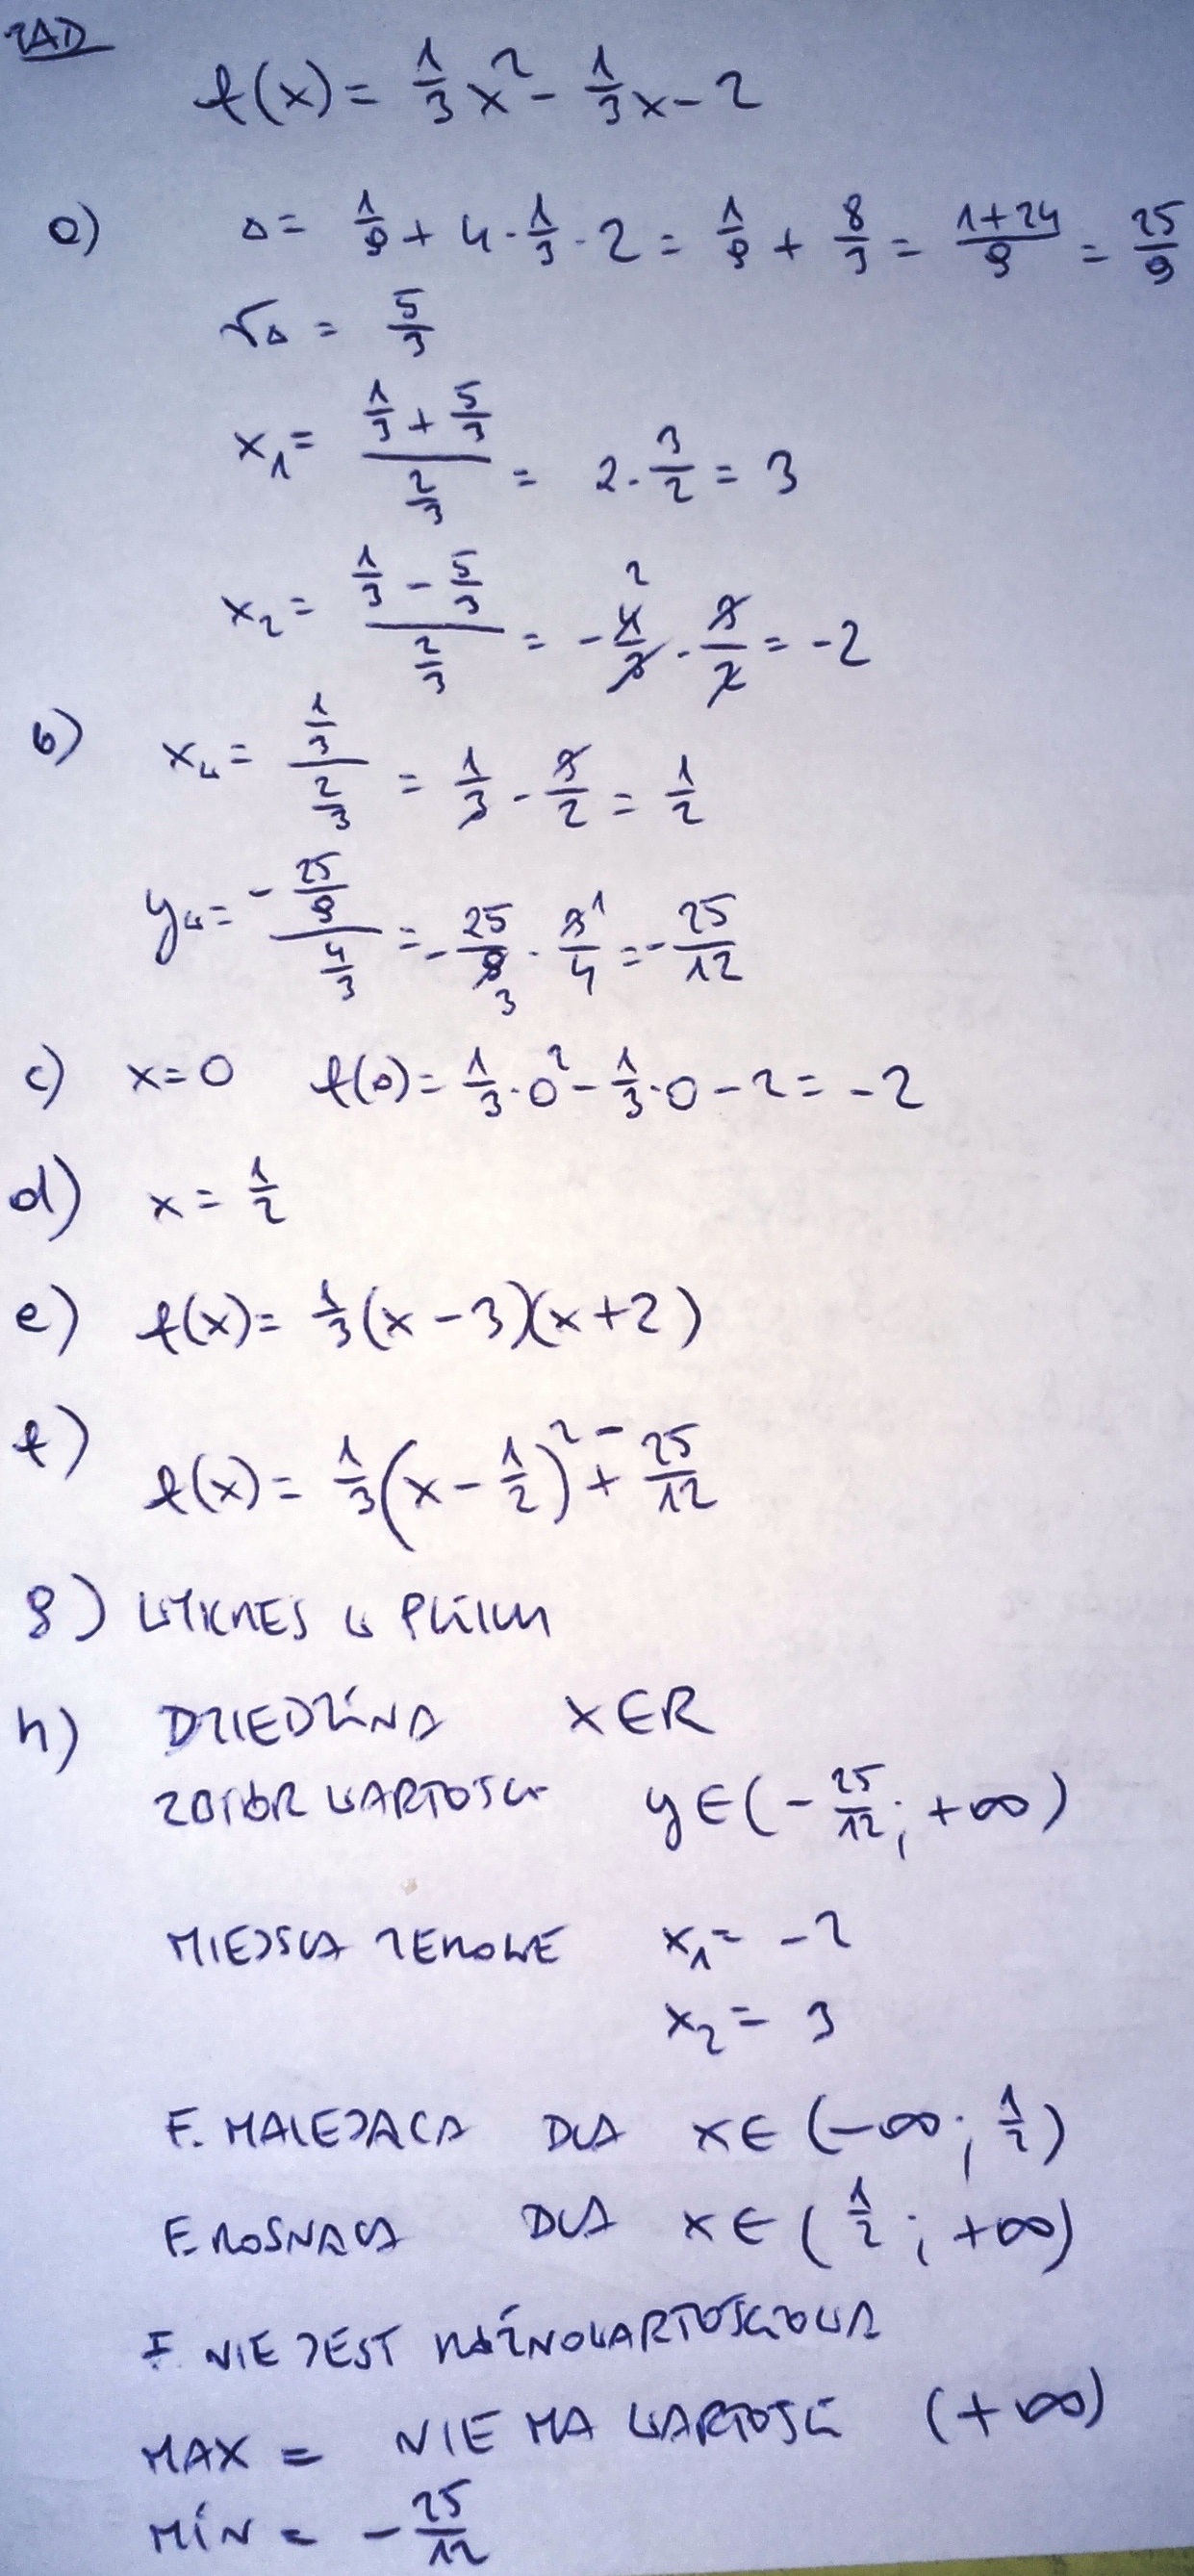 ZAD
f(x) = 1/3 x² - 1/3 x - 2
a) Δ = 1/9 + 4 · 1/3 · 2 = 1/9 + 8/3 = (1+24)/9 = 25/9
√Δ = 5/3
x₁ = (1/3 + 5/3)/(2/3) = 2 · 3/2 = 3
x₂ = (1/3 - 5/3)/(2/3) = -4/3 · 3/2 = -2
b) x_w = (1/3)/(2/3) = 1/3 · 3/2 = 1/2
y_w = (-25/9)/(4/3) = -25/9 · 3/4 = -25/12
c) x = 0 f(0) = 1/3 · 0² - 1/3 · 0 - 2 = -2
d) x = 1/2
e) f(x) = 1/3 (x - 3)(x + 2)
f) f(x) = 1/3 (x - 1/2)² - 25/12
g) WYKRES W PLIKU
h) DZIEDZINA x∈R
ZBIÓR WARTOŚCI y∈(-25/12; +∞)
MIEJSCA ZEROWE x₁ = -2
x₂ = 3
F. MALEJACA DLA x∈(-∞; 1/2)
F. ROSNACA DLA x∈(1/2; +∞)
F. NIE JEST RÓŻNOWARTOŚCIOWA
MAX = NIE MA WARTOŚCI (+∞)
MIN = -25/12